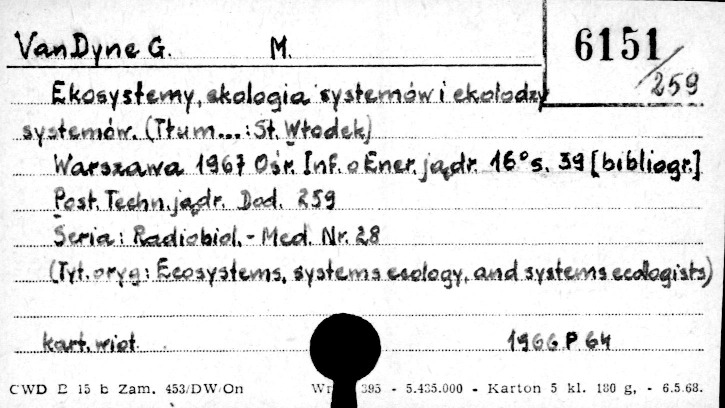 Van Dyne G. M.
6151/259
Ekosystemy, ekologia systemów i ekolodzy
systemów. (Tłum...: St. Włodek)
Warszawa 1967 Ośr. Inf. o Ener. jądr. 16° s. 39 [bibliogr.]
Post. Techn. jądr. Dod. 259
Seria: Radiobiol. - Med. Nr. 28
(Tyt. oryg: Ecosystems, systems ecology, and systems ecologists)
kart. wiot 1966 P 64
CWD B 15 b Zam. 453/DW/On 395 - 5.435.000 - Karton 5 kl. 180 g, - 6.5.68.